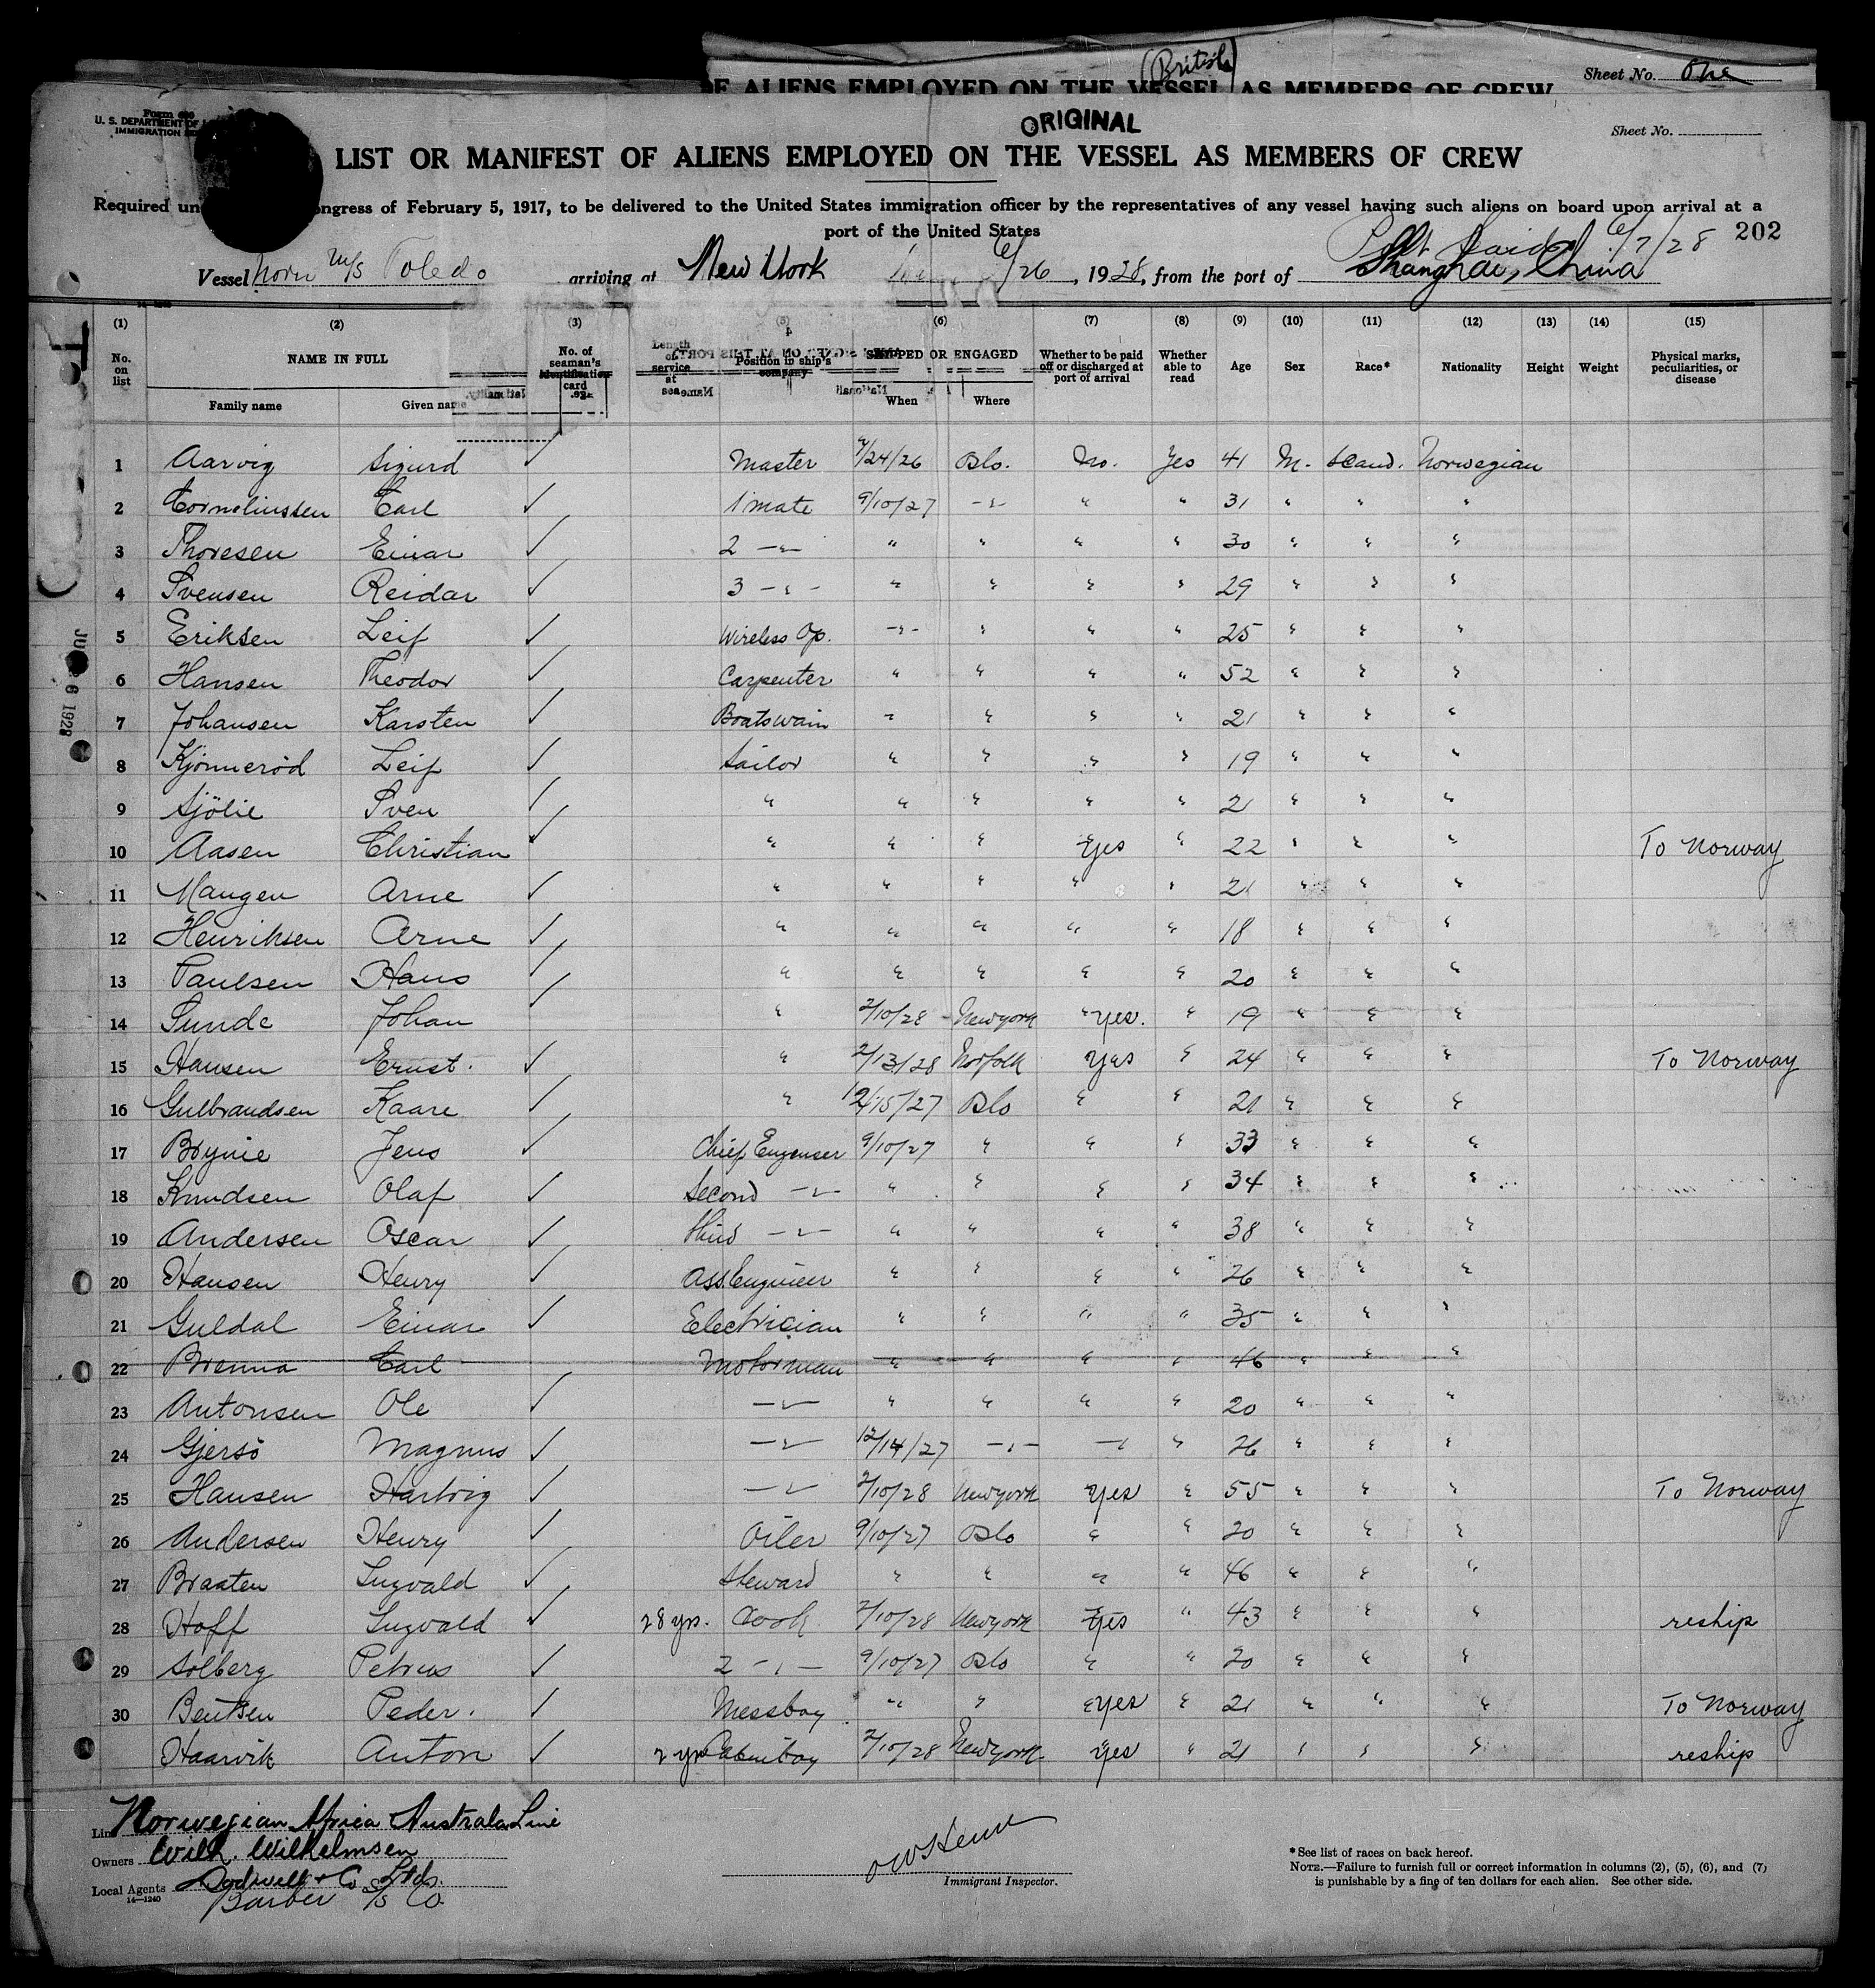 (British)
OF ALIENS EMPLOYED ON THE VESSEL AS MEMBERS OF CREW
Sheet No. One
Form 689
U. S. DEPARTMENT OF
IMMIGRATION
ORIGINAL
Sheet No.
LIST OR MANIFEST OF ALIENS EMPLOYED ON THE VESSEL AS MEMBERS OF CREW
Required un ongress of February 5, 1917, to be delivered to the United States immigration officer by the representatives of any vessel having such aliens on board upon arrival at a
port of the United States
202
Port Said 6/7/28
Vessel Norw m/s Toledo arriving at New York 6/26, 1928, from the port of Shanghai, China
(1) (2) (3) (5) (6) (7) (8) (9) (10) (11) (12) (13) (14) (15)
No. on list NAME IN FULL No. of seaman's identification card Length of service at sea Position in ship's company SHIPPED OR ENGAGED Whether to be paid off or discharged at port of arrival Whether able to read Age Sex Race* Nationality Height Weight Physical marks, peculiarities, or disease
Family name Given name When Where
1 Aarvig Sigurd ✓ Master /24/26 Oslo. No. Yes 41 M. Scand. Norwegian
2 Corneliussen Carl ✓ 1 mate 9/10/27 -"- " " 31 " " "
3 Thoresen Einar ✓ 2 -"- " " " " 30 " " "
4 Svensen Reidar ✓ 3 -"- " " " " 29 " " "
5 Eriksen Leif ✓ Wireless Op. -"- " " " 25 " " "
6 Hansen Theodor ✓ Carpenter " " " " 52 " " "
7 Johansen Karsten ✓ Boatswain " " " " 21 " " "
8 Kjönneröd Leif ✓ Sailor " " " " 19 " " "
9 Sjölie Sven ✓ " " " " " 21 " " "
10 Aasen Christian ✓ " " " Yes " 22 " " " To Norway
11 Haugen Arne ✓ " " " " " 21 " " "
12 Henriksen Arne ✓ " " " " " 18 " " "
13 Paulsen Hans ✓ " " " " " 20 " " "
14 Sunde Johan ✓ " 2/10/28 New york " Yes. " 19 " " "
15 Hansen Ernst. ✓ " 2/13/28 Norfolk Yes " 24 " " " To Norway
16 Gulbrandsen Kaare ✓ " 12/15/27 Oslo " " 21 " " "
17 Brynie Jens ✓ Chief Engenser 9/10/27 " " " 33 " " "
18 Knudsen Olaf ✓ Second -"- " " " " 34 " " "
19 Andersen Oscar ✓ third -"- " " " " 38 " " "
20 Hansen Henry ✓ Ass. Engineer " " " " 26 " " "
21 Guldal Einar ✓ Electrician " " " " 35 " " "
22 Brenna Carl Motorman " " " " 46 " " "
23 Antonsen Ole ✓ -"- " " " " 20 " " "
24 Gjersö Magnus ✓ -"- 12/14/27 -"- -" " 26 " " "
25 Hansen Hartvig ✓ -"- 2/10/28 New york Yes " 55 " " " To Norway
26 Andersen Henry ✓ Oiler 9/10/27 Oslo " " 20 " " "
27 Braaten Ingvald ✓ Steward " " " " 46 " " "
28 Hoff Ingvald ✓ 28 yrs. Cook 2/10/28 New york Yes " 43 " " " reship
29 Solberg Petrus ✓ 2 -"- 9/10/27 Oslo " " 20 " " "
30 Bentsen Peder. ✓ Messboy " " " yes " 21 " " " To Norway
Haarvik Anton ✓ 2 yrs Cabinboy 2/10/28 New york Yes " 21 " " " reship
Line Norwegian Africa Australa Line
Owners Wilh. Wilhelmsen
Local Agents Dodwell & Co. Ltd.
Barber S/S Co.
14—1240
Immigrant Inspector.
*See list of races on back hereof.
NOTE.—Failure to furnish full or correct information in columns (2), (5), (6), and (7)
is punishable by a fine of ten dollars for each alien. See other side.